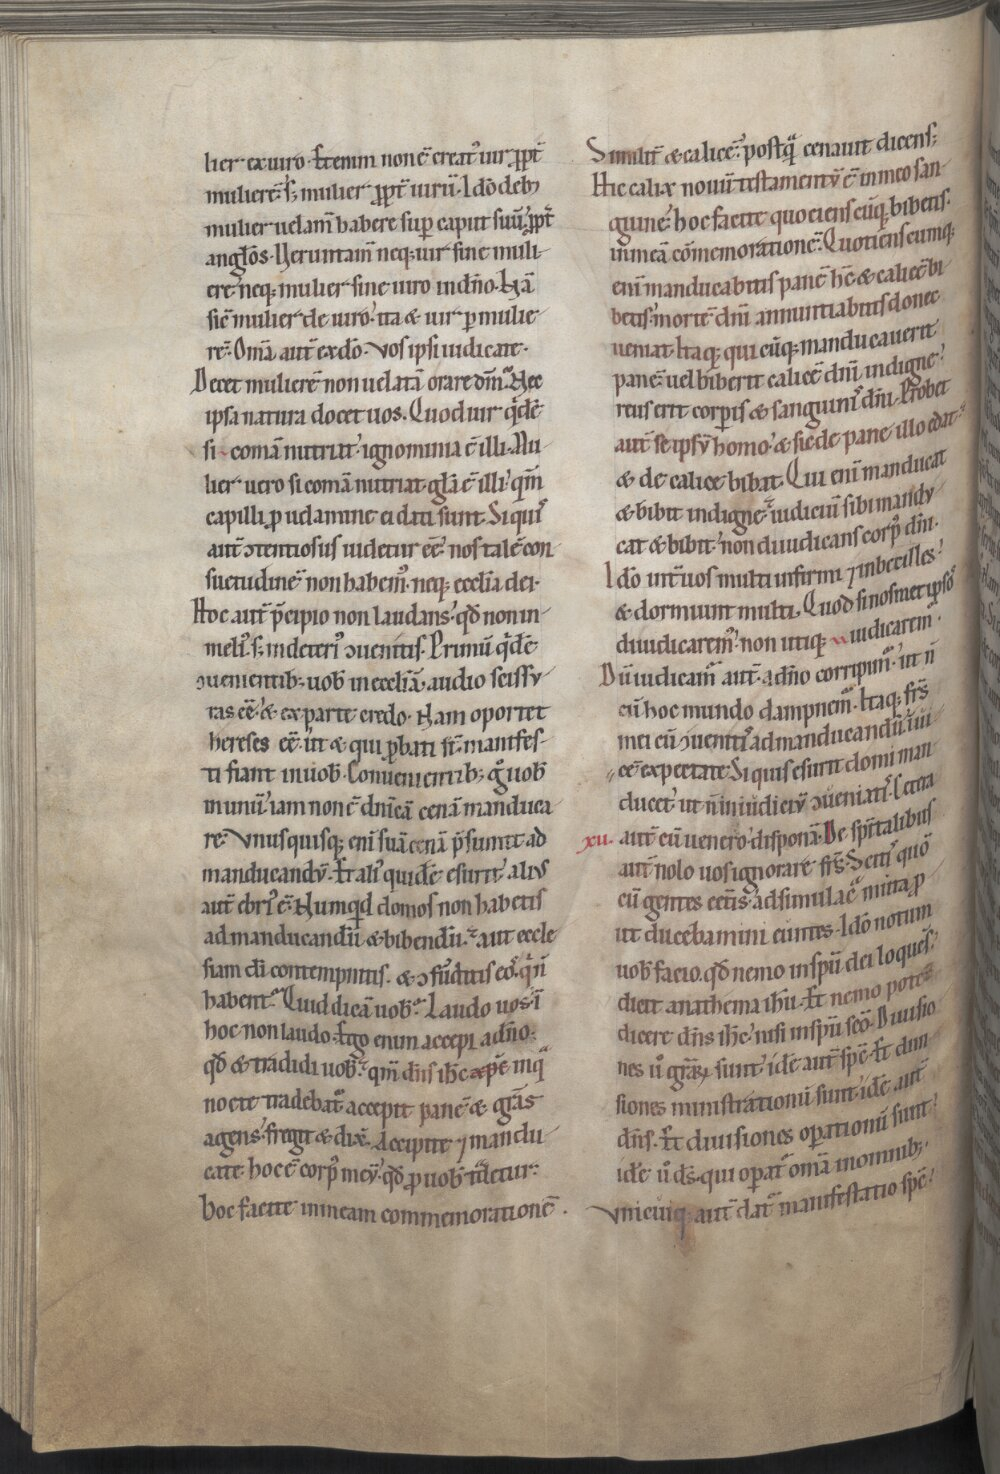 lier ex uiro. Etenim non ē creat᷒ uir ꝓpt̄
mulierē. s; mulier ꝓpt̄ uirū. Idō deb&
mulier uelam̄ habere sup̱ caput suū. ꝓpt̄
angłos. Ueruntam̄ neq; uir sine muli
ere. neq; mulier sine uiro in dn̄o. Nā
sic̄ mulier de uiro. ita & uir p̱ mulie
rē. Om̄a aut̄ ex dō. Vos ipsi iudicate.
Decet mulierē non uelatā orare dm̄. Nec
ipsa natura docet uos. Quod uir qͥdē
si comā nutriat. ignominia ē illi. Mu
lier uero si comā nutriat. gl̄a ē illi. qm̄
capilli ꝓ uelamine ei dati sunt. Si quis
aut̄ ↄtentiosus uidetur ēē. nos talē con
suetudinē non habem᷒. neq; ecclia dei.
Hoc aut̄ p̄cipio non laudans. qd̄ non in
meli᷒. s; in deteri᷒ ↄuenitis. Primū qͥdē
ↄuenientib; uob̄ in eccliā. audio scissu
ras ēē. & ex parte credo. Nam oportet
hereses ēē. ut & qui ꝓbati st̄. manifes
ti fiant in uob̄. Conuenientib; g̊ uob̄
in unū. iam non ē dn̄icā cenā manduca
re. Vnusquisq; eni suā cenā p̄sumit ad
manducandū. Et ali᷒ quidē esurit. alius
aut̄ ebri᷒ ē. Numqͥd domos non habetis
ad manducandū & bibendū. aut eccle
siam di contempnitis. & ↄfūditis eos. qͥ n̄
habent. Quid dicā uob̄. Laudo uos. ī
hoc non laudo. Ego enim accepi a dn̄o.
qd̄ & tradidi uob̄. qm̄ dn̄s ih̄c xp̄c in qͣ
nocte tradebat᷒ accepit panē. & gr̄as
agens. fregit & dix̄. Accipite ⁊ mandu
cate. hoc ē corp᷒ meū. qd̄ ꝓ uob̄ tdetur.
hoc facite in meam commemorationē.
Similit̄ & calicē. postqͣ cenauit dicens.
Hic calix nouū testamentū ē in meo san
guine. hoc facite quocienscūq; bibetis.
in meā cōmemorationē. Quotienscumq;
eni manducabitis panē hc̄ & calicē bi
betis. mortē dn̄i annuntiabitis donec
ueniat. Itaq; quicūq; manducauerit
panē. uel biberit calicē dn̄i indigne.
reus erit corp̱is & sanguinis dn̄i. Probet
aut̄ se ipsū homo. & sic de pane illo edat.
& de calice bibat. Qui eni manducat
& bibit indigne. iudiciū sibi mandu
cat & bibit. non diiudicans corp᷒ dn̄i.
Idō int̄ uos multi infirmi ⁊ inbecilles.
& dormiunt multi. Quod si nosmet ipsos
diiudicarem᷒. non utiq; iudicarem᷒.
Dū iudicam᷒ aut̄. a dn̄o corripim᷒. ut n̄
cū hoc mundo dampnem᷒. Itaq; frs̄
mei cū ↄuenitis ad manducandū. iui
cē expectate. Si quis esurit domi man
ducet. ut n̄ in iudiciū ↄueniatis. Cetera
xu. aut̄ cū uenero disponā. De spiritalibus
aut̄ nolo uos ignorare frs̄. Scitis quō
cū gentes eētis. ad simulacͣ muta ꝓ
ut ducebamini euntes. Idō notum
uob̄ facio. qd̄ nemo in spū dei loquens.
dicit anathema ih̄u. Et nemo potest
dicere dn̄s ih̄c. nisi in spū scō. Diuisio
nes ů gr̄aꝝ sunt. idē aut̄ spc̄. Et diui
siones ministrationū sunt. idē aut̄
dn̄s. Et diuisiones op̱ationū sunt.
idē ů ds̄. qui op̱at᷒ om̄a in omnib;.
Vnicuiq; aut̄ dat᷒ manifestatio spc̄.